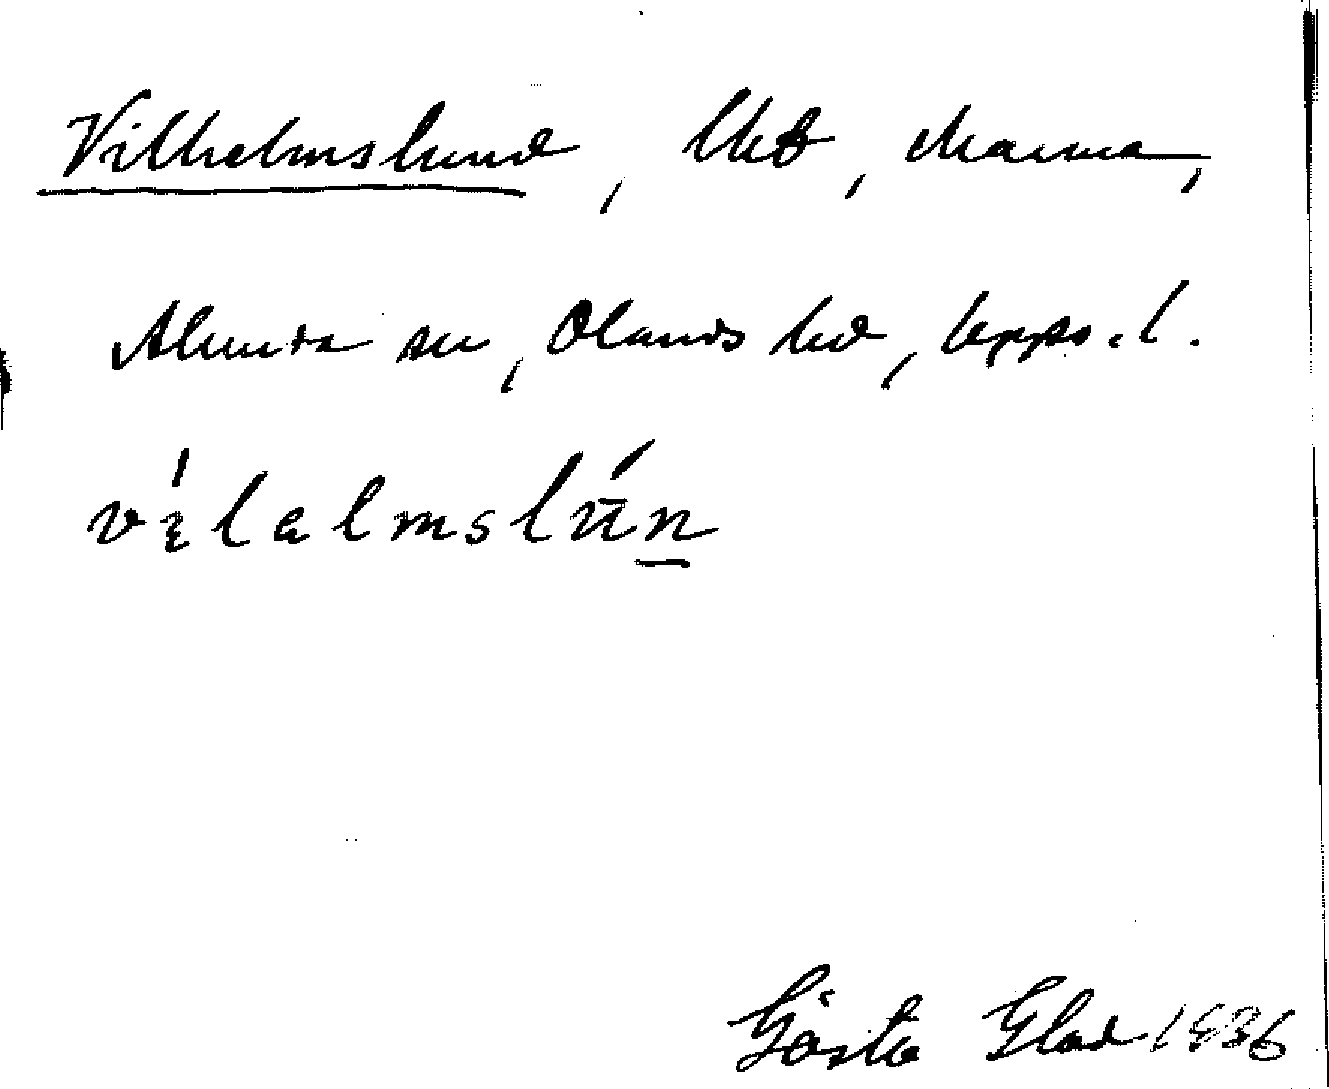 Vilhelmslund, lht, Marma,
Almunge sn, Olands hd, Upps. l.
vilalmslūn
Gösta Glad 1936